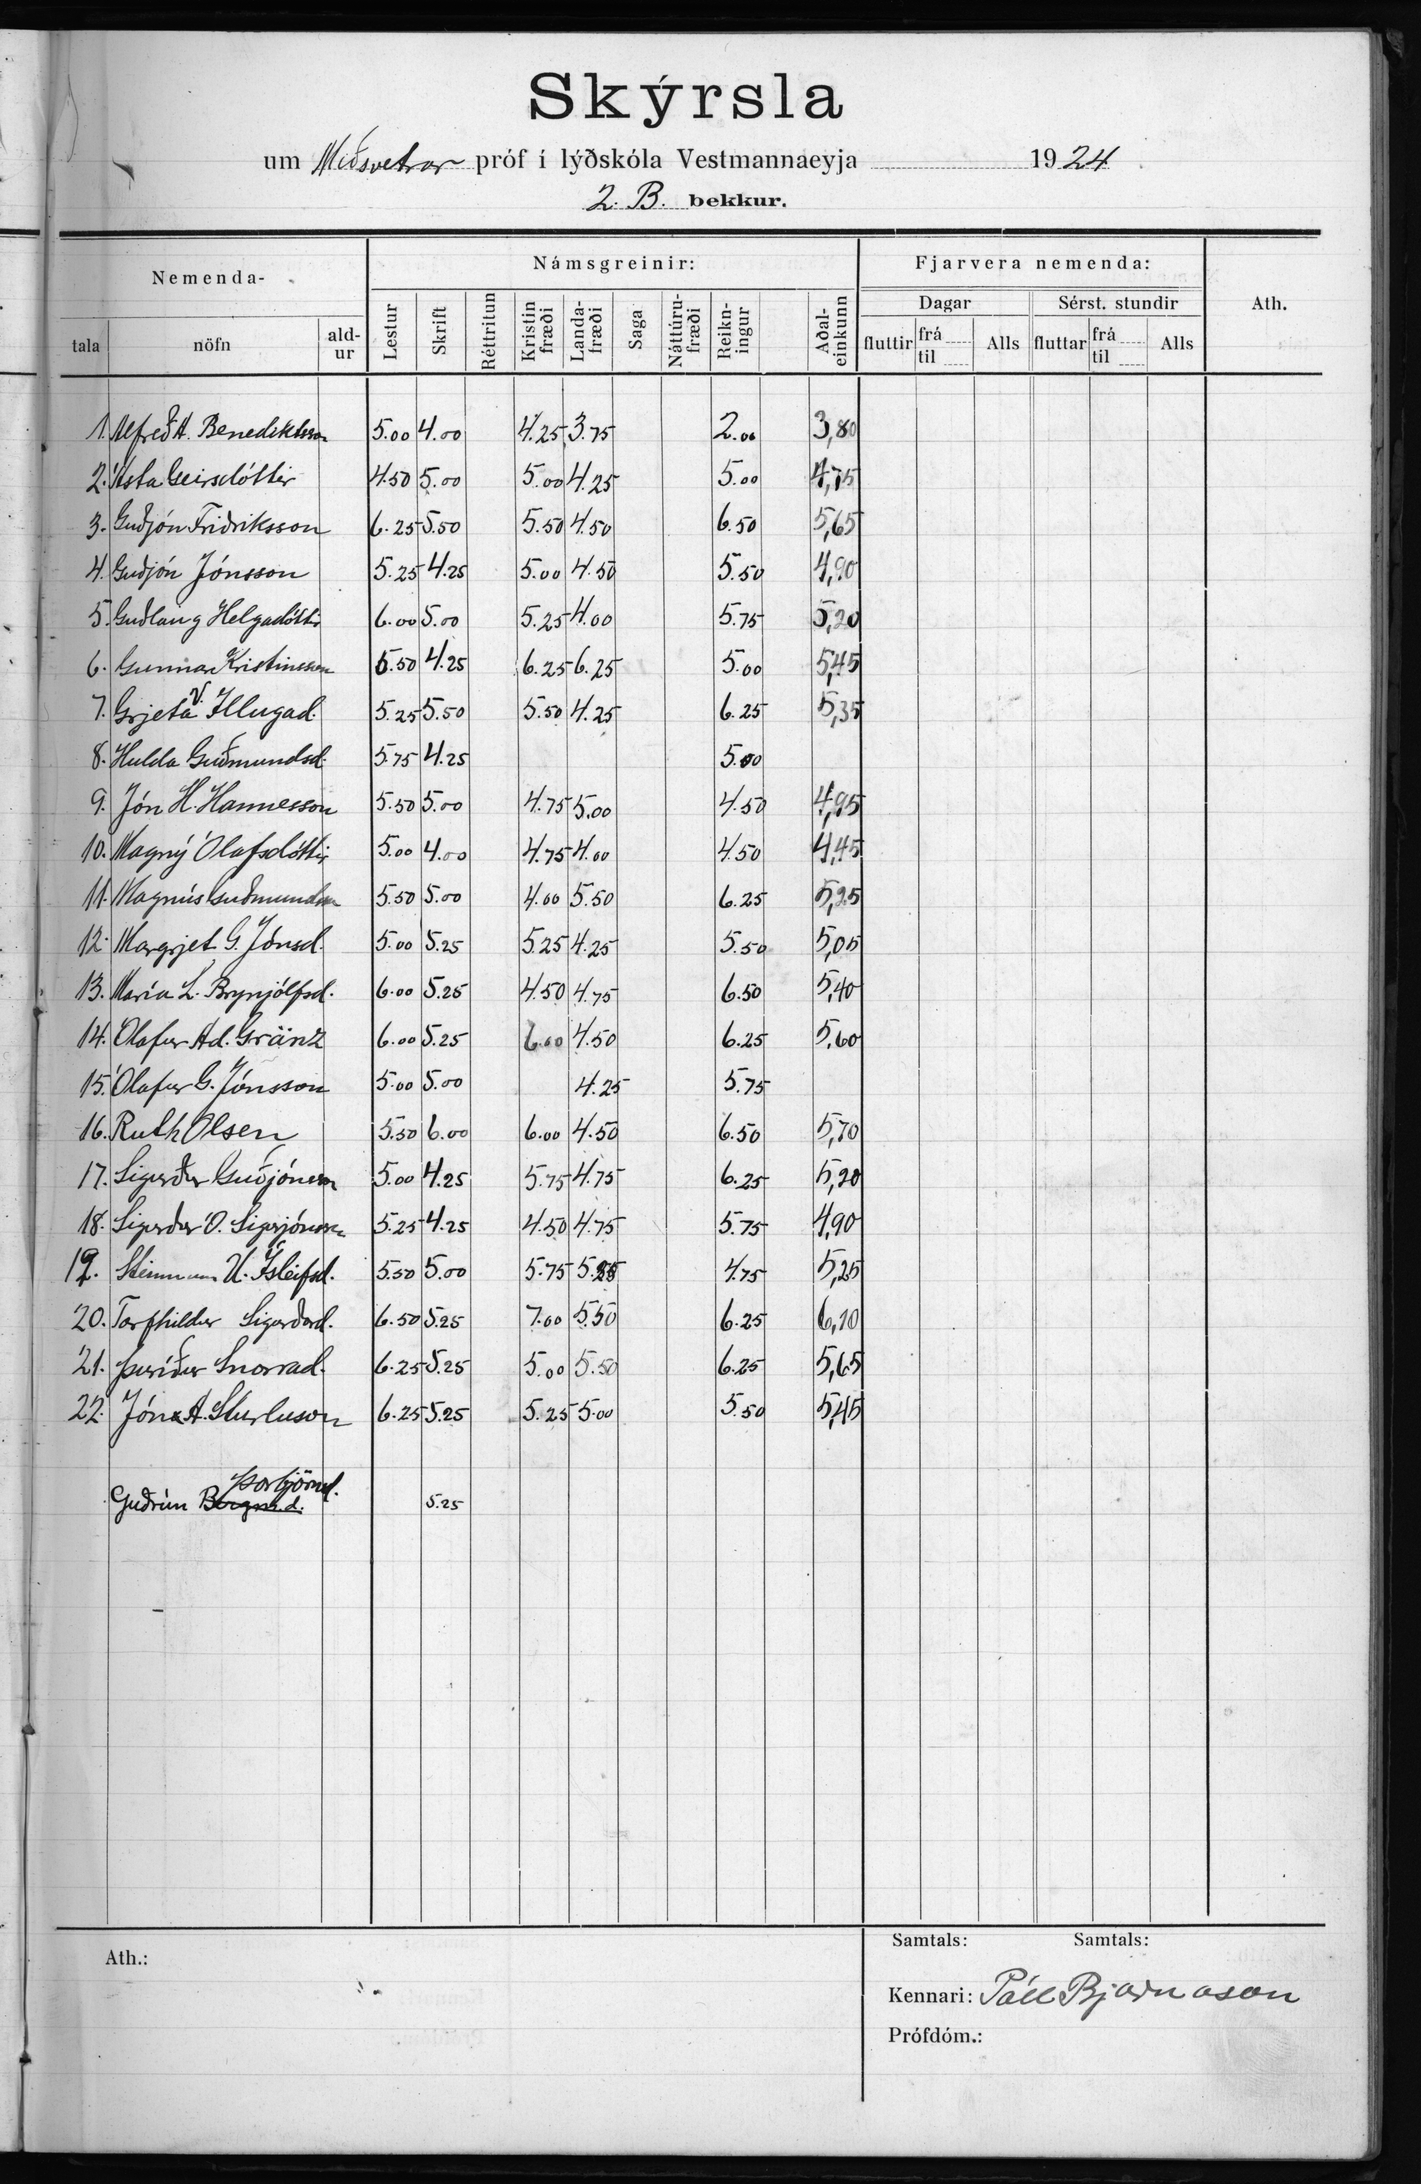 Skýrsla
um Miðsvetrar próf í lýðskóla Vestmannaeyja 1924
2. B. bekkur.
Nemenda- Námsgreinir: Fjarvera nemenda: Ath.
tala nöfn ald-ur Lestur Skrift Réttritun Kristin fræði Landa-fræði Saga Náttúru-fræði Reikn-ingur Aðal-einkunn Dagar Sérst. stundir
fluttir frá til Alls fluttar frá til Alls
1. Alfreð A. Benediktsson 5.00 4.00 4.25 3.75 2.00 3,80
2. Ásta Geirsdóttir 4.50 5.00 5.00 4.25 5.00 4,75
3. Guðjón Friðriksson 6.25 5.50 5.50 4.50 6.50 5,65
4. Guðjón Jónsson 5.25 4.25 5.00 4.50 5.50 4,90
5. Guðlaug Helgadóttir 6.00 5.00 5.25 4.00 5.75 5,20
6. Gunnar Kristinsson 5.50 4.25 6.25 6.25 5.00 5,45
7. Grjeta V. Illugad. 5.25 5.50 5.50 4.25 6.25 5,35
8. Hulda Guðmundsd. 5.75 4.25 5.00
9. Jón H. Hannesson 5.50 5.00 4.75 5.00 4.50 4,95
10. Magný Ólafsdóttir 5.00 4.00 4.75 4.00 4.50 4,45
11. Magnús Guðmundsson 5.50 5.00 4.00 5.50 6.25 5,25
12. Margrjet G. Jónsd. 5.00 5.25 5.25 4.25 5.50 5,05
13. María L. Brynjólfsd. 6.00 5.25 4.50 4.75 6.50 5,40
14. Ólafur Ad. Gränz 6.00 5.25 6.00 4.50 6.25 5,60
15. Ólafur G. Jónsson 5.00 5.00 4.25 5.75
16. Ruth Olsen 5.50 6.00 6.00 4.50 6.50 5,70
17. Sigurður Guðjónsson 5.00 4.25 5.75 4.75 6.25 5,20
18. Sigurður Ó. Sigurjónsson 5.25 4.25 4.50 4.75 5.75 4,90
19. Steinunn U. Ísleifsd. 5.50 5.00 5.75 5.25 4.75 5,25
20. Torfhildur Sigurðard. 6.50 5.25 7.00 5.50 6.25 6,10
21. Þuríður Snorrad. 6.25 5.25 5.00 5.50 6.25 5,65
22. Jón A. Sturluson 6.25 5.25 5.25 5.00 5.50 5,45
Þorbjörnsd.
Guðrún 5.25
Ath.: Samtals: Samtals:
Kennari: Páll Bjarnason
Prófdóm.: